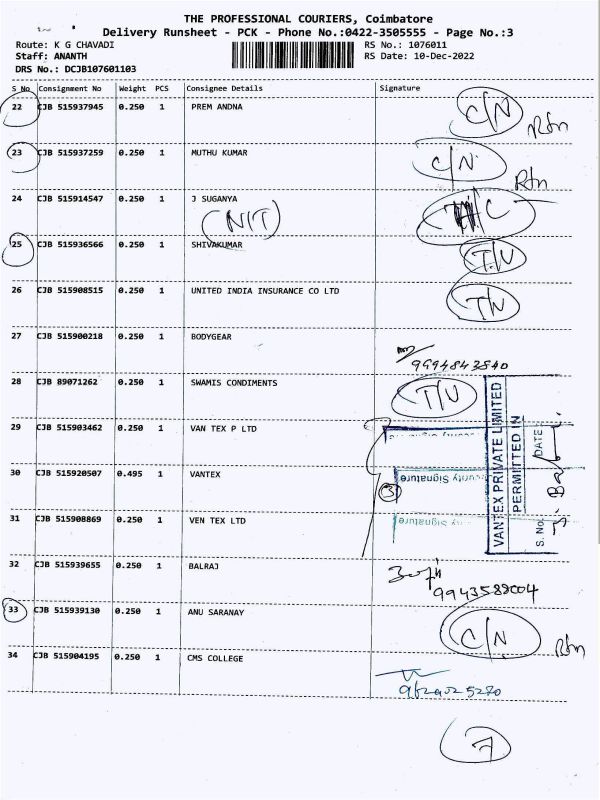 THE PROFESSIONAL COURIERS, Coimbatore
Delivery Runsheet - PCK - Phone No.:0422-3505555 - Page No.:3
Route: K G CHAVADI RS No.: 1076011
Staff: ANANTH RS Date: 10-Dec-2022
DRS No.: DCJB107601103
S No Consignment No Weight PCS Consignee Details Signature
22 CJB 515937945 0.250 1 PREM ANDNA C/N Rtn
23 CJB 515937259 0.250 1 MUTHU KUMAR C/N Rtn
24 CJB 515914547 0.250 1 J SUGANYA
(N/T)
25 CJB 515936566 0.250 1 SHIVAKUMAR T/V
26 CJB 515908515 0.250 1 UNITED INDIA INSURANCE CO LTD T/V
27 CJB 515900218 0.250 1 BODYGEAR
9994843840
28 CJB 89071262 0.250 1 SWAMIS CONDIMENTS T/V
29 CJB 515903462 0.250 1 VAN TEX P LTD
30 CJB 515920507 0.495 1 VANTEX
31 CJB 515908869 0.250 1 VEN TEX LTD
VANTEX PRIVATE LIMITED
PERMITTED IN
S. No. DATE:
Security Signature
3
32 CJB 515939655 0.250 1 BALRAJ
9943588004
33 CJB 515939130 0.250 1 ANU SARANAY C/N Rtn
34 CJB 515904195 0.250 1 CMS COLLEGE
7